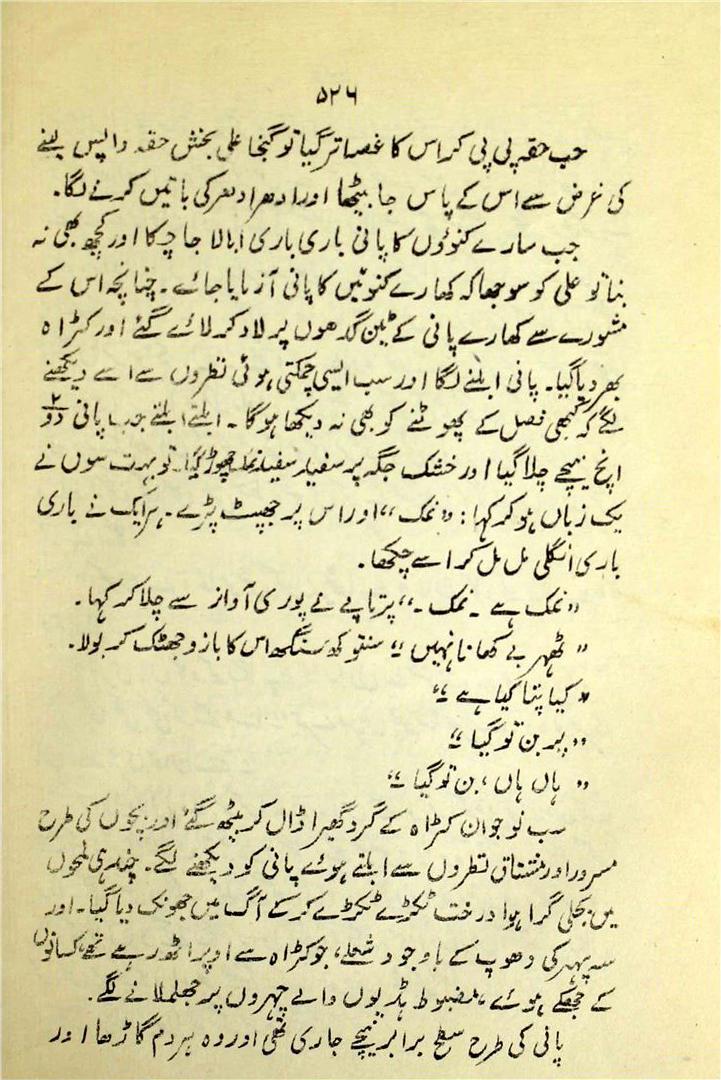 ۵۲۶
جب حقہ پی پی کر اس کا غصہ اتر گیا تو گنجا علی بخش حقہ واپس لینے
کی غرض سے اس کے پاس جا بیٹھا اور ادھر ادھر کی باتیں کرنے لگا۔
جب سارے کنوؤں کا پانی باری باری ابالا جا چکا اور کچھ بھی نہ
بنا تو علی کو سوجھا کہ کھارے کنوئیں کا پانی آزمایا جائے۔ چنانچہ اس کے
مشورے سے کھارے پانی کے ٹین گدھوں پر لاد کر لائے گئے اور کڑاہ
بھر دیا گیا۔ پانی ابلنے لگا اور سب ایسی چمکتی ہوئی نظروں سے اسے دیکھنے
لگے کہ کبھی فصل کے پھوٹنے کو بھی نہ دیکھا ہوگا۔ ابلتے ابلتے جب پانی دو ۲
انچ نیچے چلا گیا اور خشک جگہ پر سفید سفید نمک چھوڑ گیا۔ تو بہت سوں نے
یک زباں ہو کر کہا: "نمک" اور اس پر جھپٹ پڑے۔ ہر ایک نے باری
باری انگلی مل مل کر اسے چکھا۔
"نمک ہے۔ نمک۔" پرتاپے نے پوری آواز سے چلا کر کہا۔
"ٹھہر بے کھانا نہیں" سنتوکھ سنگھ اس کا بازو جھٹک کر بولا۔
"کیا پتا کیا ہے"
"پر بن تو گیا"
"ہاں ہاں، بن تو گیا"
سب نوجوان کڑاہ کے گرد گھیرا ڈال کر بیٹھ گئے اور بچوں کی طرح
مسرور اور مشتاق نظروں سے ابلتے ہوئے پانی کو دیکھنے لگے۔ چند ہی لمحوں
میں بجلی گرا ہوا درخت ٹکڑے ٹکڑے کر کے آگ میں جھونک دیا گیا۔ اور
سہ پہر کی دھوپ کے باوجود شعلے، جو کڑاہ سے اوپر اٹھ رہے تھے، کسانوں
کے جھکے ہوئے، مضبوط ہڈیوں والے چہروں پر جھلملانے لگے۔
پانی کی طرح سطح برابر نیچے جاری تھی اور وہ ہر دم گاڑھا اور